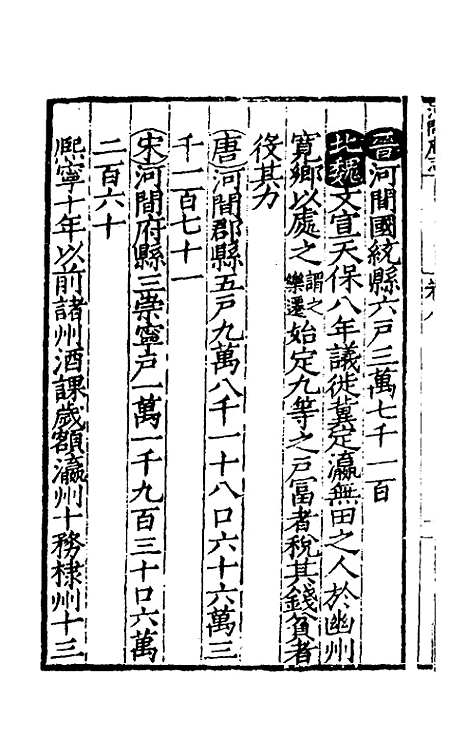 晉河間國統縣六戸三萬七千一百
北魏文宣天保八年議徙冀定瀛無田之人於幽州
寛鄉以處之謂之樂遷始定九等之戸富者稅其錢貧者
役其力
唐河間郡縣五戸九萬八千一十八口六十六萬三
千一百七十一
宋河間府縣三崇寧戸一萬一千九百三十口六萬
二百六十
熈寧十年以前諸州酒課歲額瀛州十務棣州十三